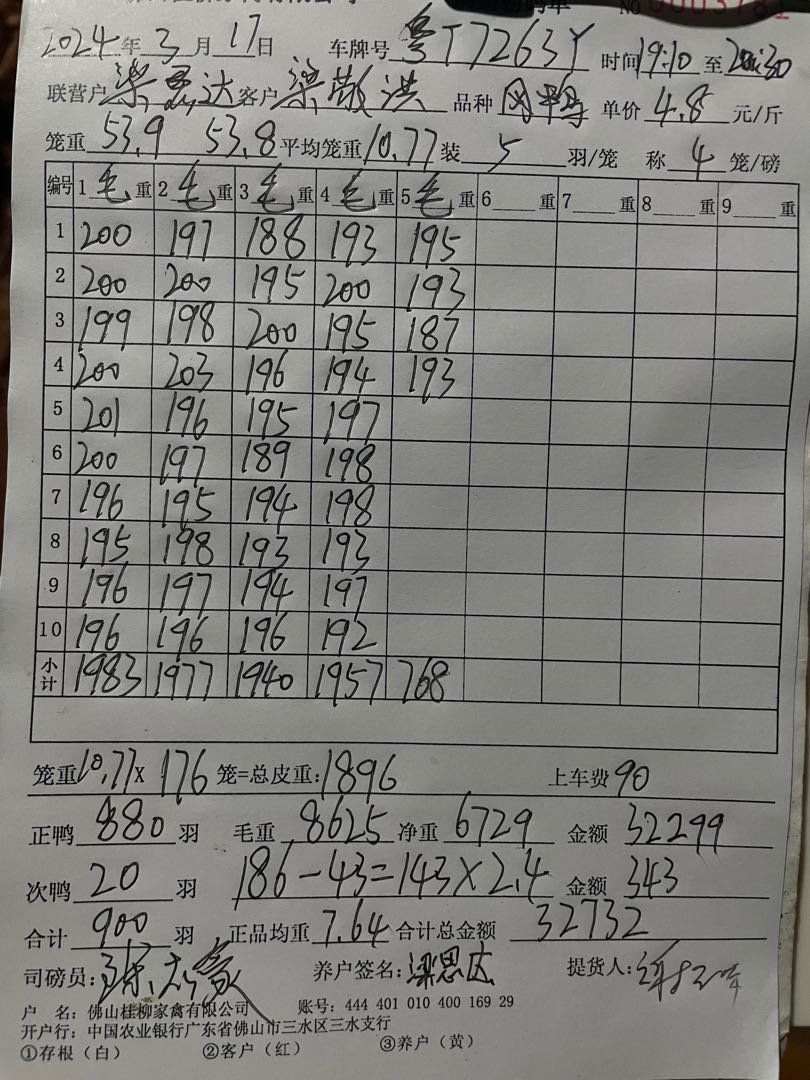 NO 0003781
2024年3月17日 车牌号 粤T7263Y 时间19:10至20:30
联营户 梁思达 客户 梁敬洪 品种 单价4.8元/斤
笼重 53.9 53.8 平均笼重10.77 装5羽/笼 称4笼/磅
编号 1毛重 2毛重 3毛重 4毛重 5毛重 6重 7重 8重 9重
1 200 197 188 193 195
2 200 200 195 200 193
3 199 198 200 195 187
4 200 203 196 194 193
5 201 196 195 197
6 200 197 189 198
7 196 195 194 198
8 195 198 193 193
9 196 197 194 197
10 196 196 196 192
小计 1983 1977 1940 1957 768
笼重10.77×176笼=总皮重:1896 上车费90
正鸭880羽 毛重8625 净重6729 金额32299
次鸭20羽 186-43=143×2.4 金额343
合计900羽 正品均重7.64 合计总金额32732
司磅员: 养户签名:梁思达 提货人:
户 名: 佛山桂柳家禽有限公司 账号: 444 401 010 400 169 29
开户行: 中国农业银行广东省佛山市三水区三水支行
①存根(白) ②客户(红) ③养户(黄)